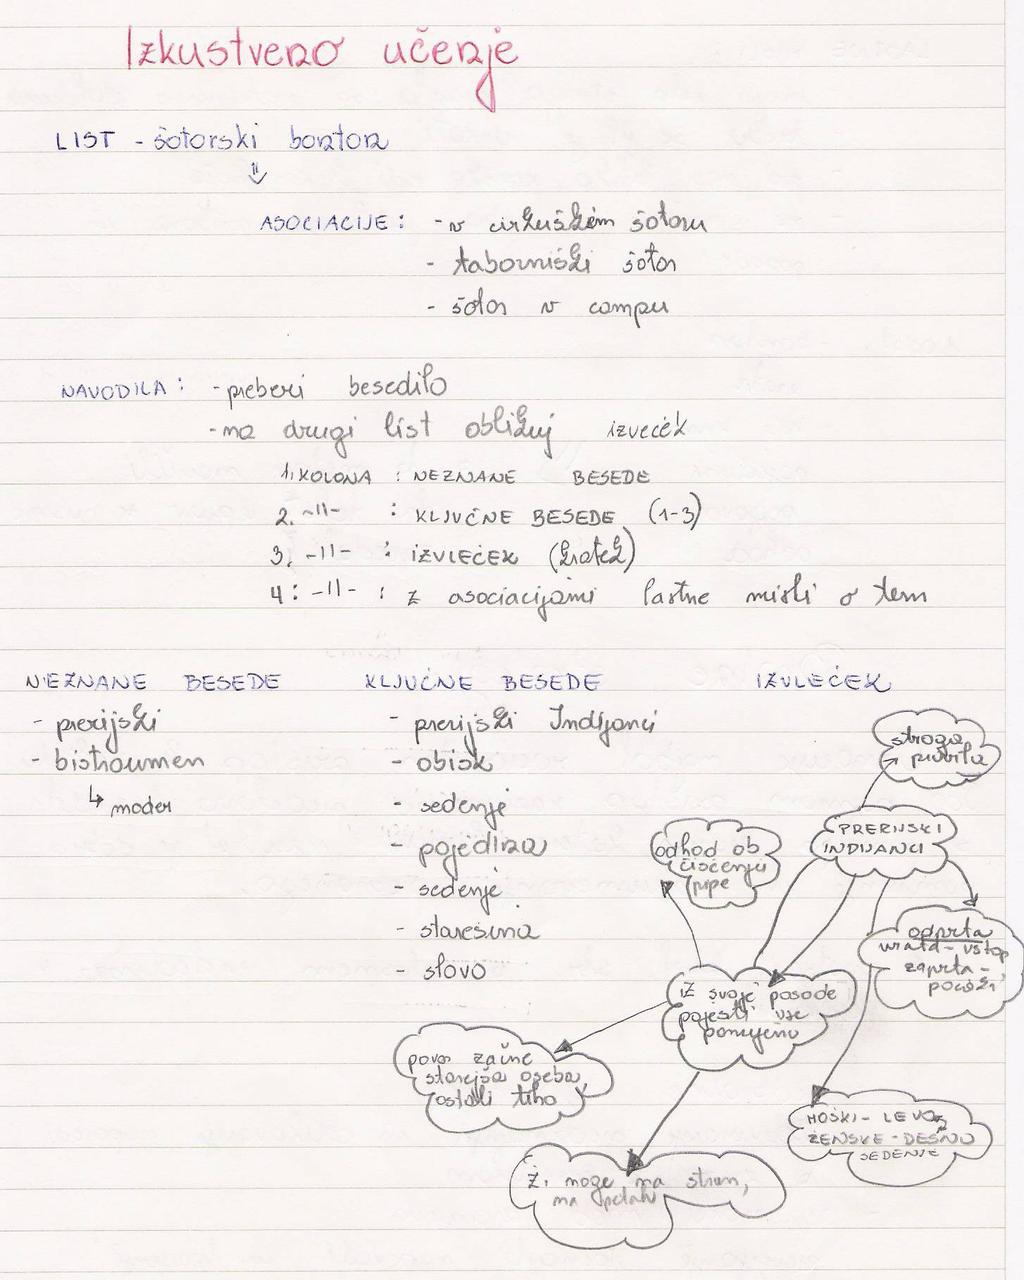 Izkustveno učenje
LIST - šotorski bonton
ASOCIACIJE: - v cirkuškem šotoru
- taborniški šotor
- šotor v campu
NAVODILA: - preberi besedilo
- na drugi list oblikuj izveček
1. KOLONA : NEZNANE BESEDE
2. -11- : KLJUČNE BESEDE (1-3)
3. -11- : IZVLEČEK (kratek)
4: -11- : z asociacijami lastne misli o tem
NEZNANE BESEDE KLJUČNE BESEDE IZVLEČEK
- prerijski
- bistroumen
↳ moder
- prerijski Indijanci
- obisk
- sedenje
- pojedina
- sedenje
- starešina
- slovo
stroga
pravila
PRERIJSKI
INDIJANCI
odhod ob
čiščenju
pipe
odprta
vrata - vstop
zaprta -
počaki
iz svoje posode
pojesti vse
ponujeno
povor začne
starejša oseba,
ostali tiho
MOŠKI - LEVO,
ŽENSKE - DESNO
SEDENJE
Ž. noge na stran,
na petah